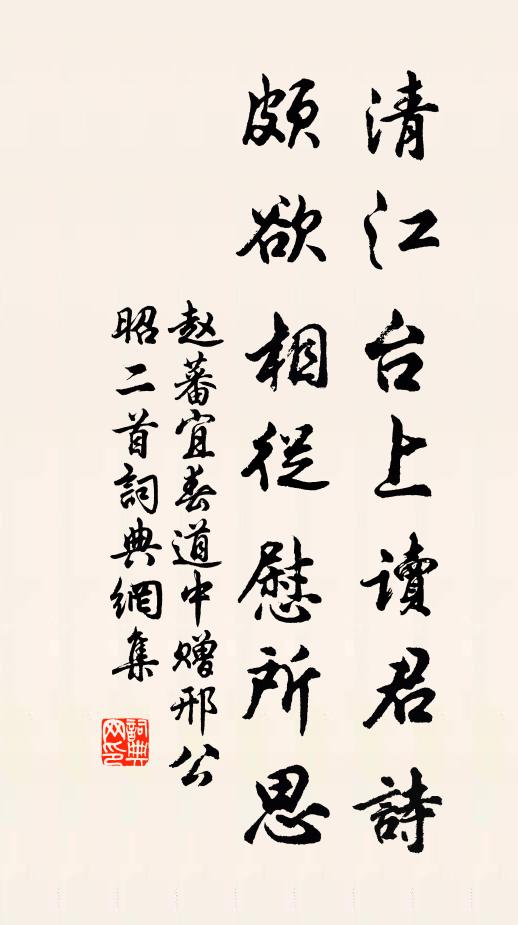 清江台上讀君詩
頗欲相從慰所思
赵蕃宜春道中赠邢公
昭二首詞典網集
詞典網印